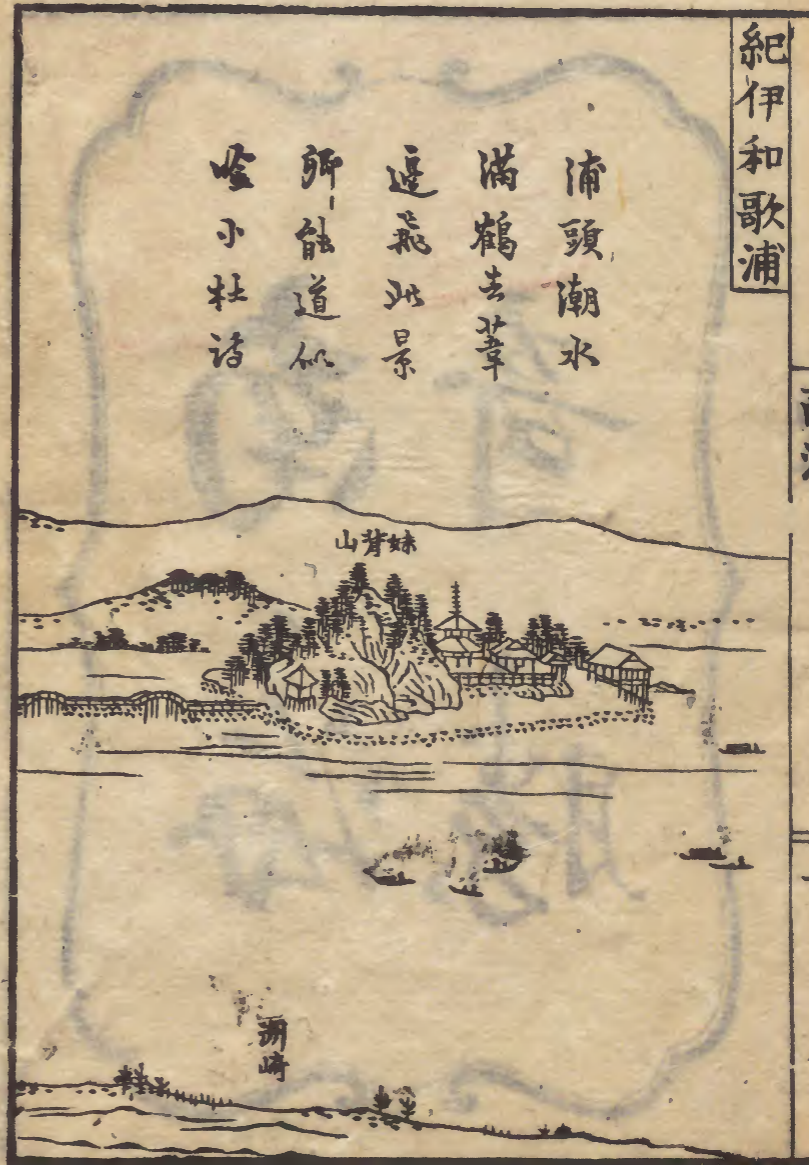 紀伊和歌浦
浦頭潮水
滿鶴去葦
邊飛此景
卿能道似
吟小杜詩
妹背山
洲崎